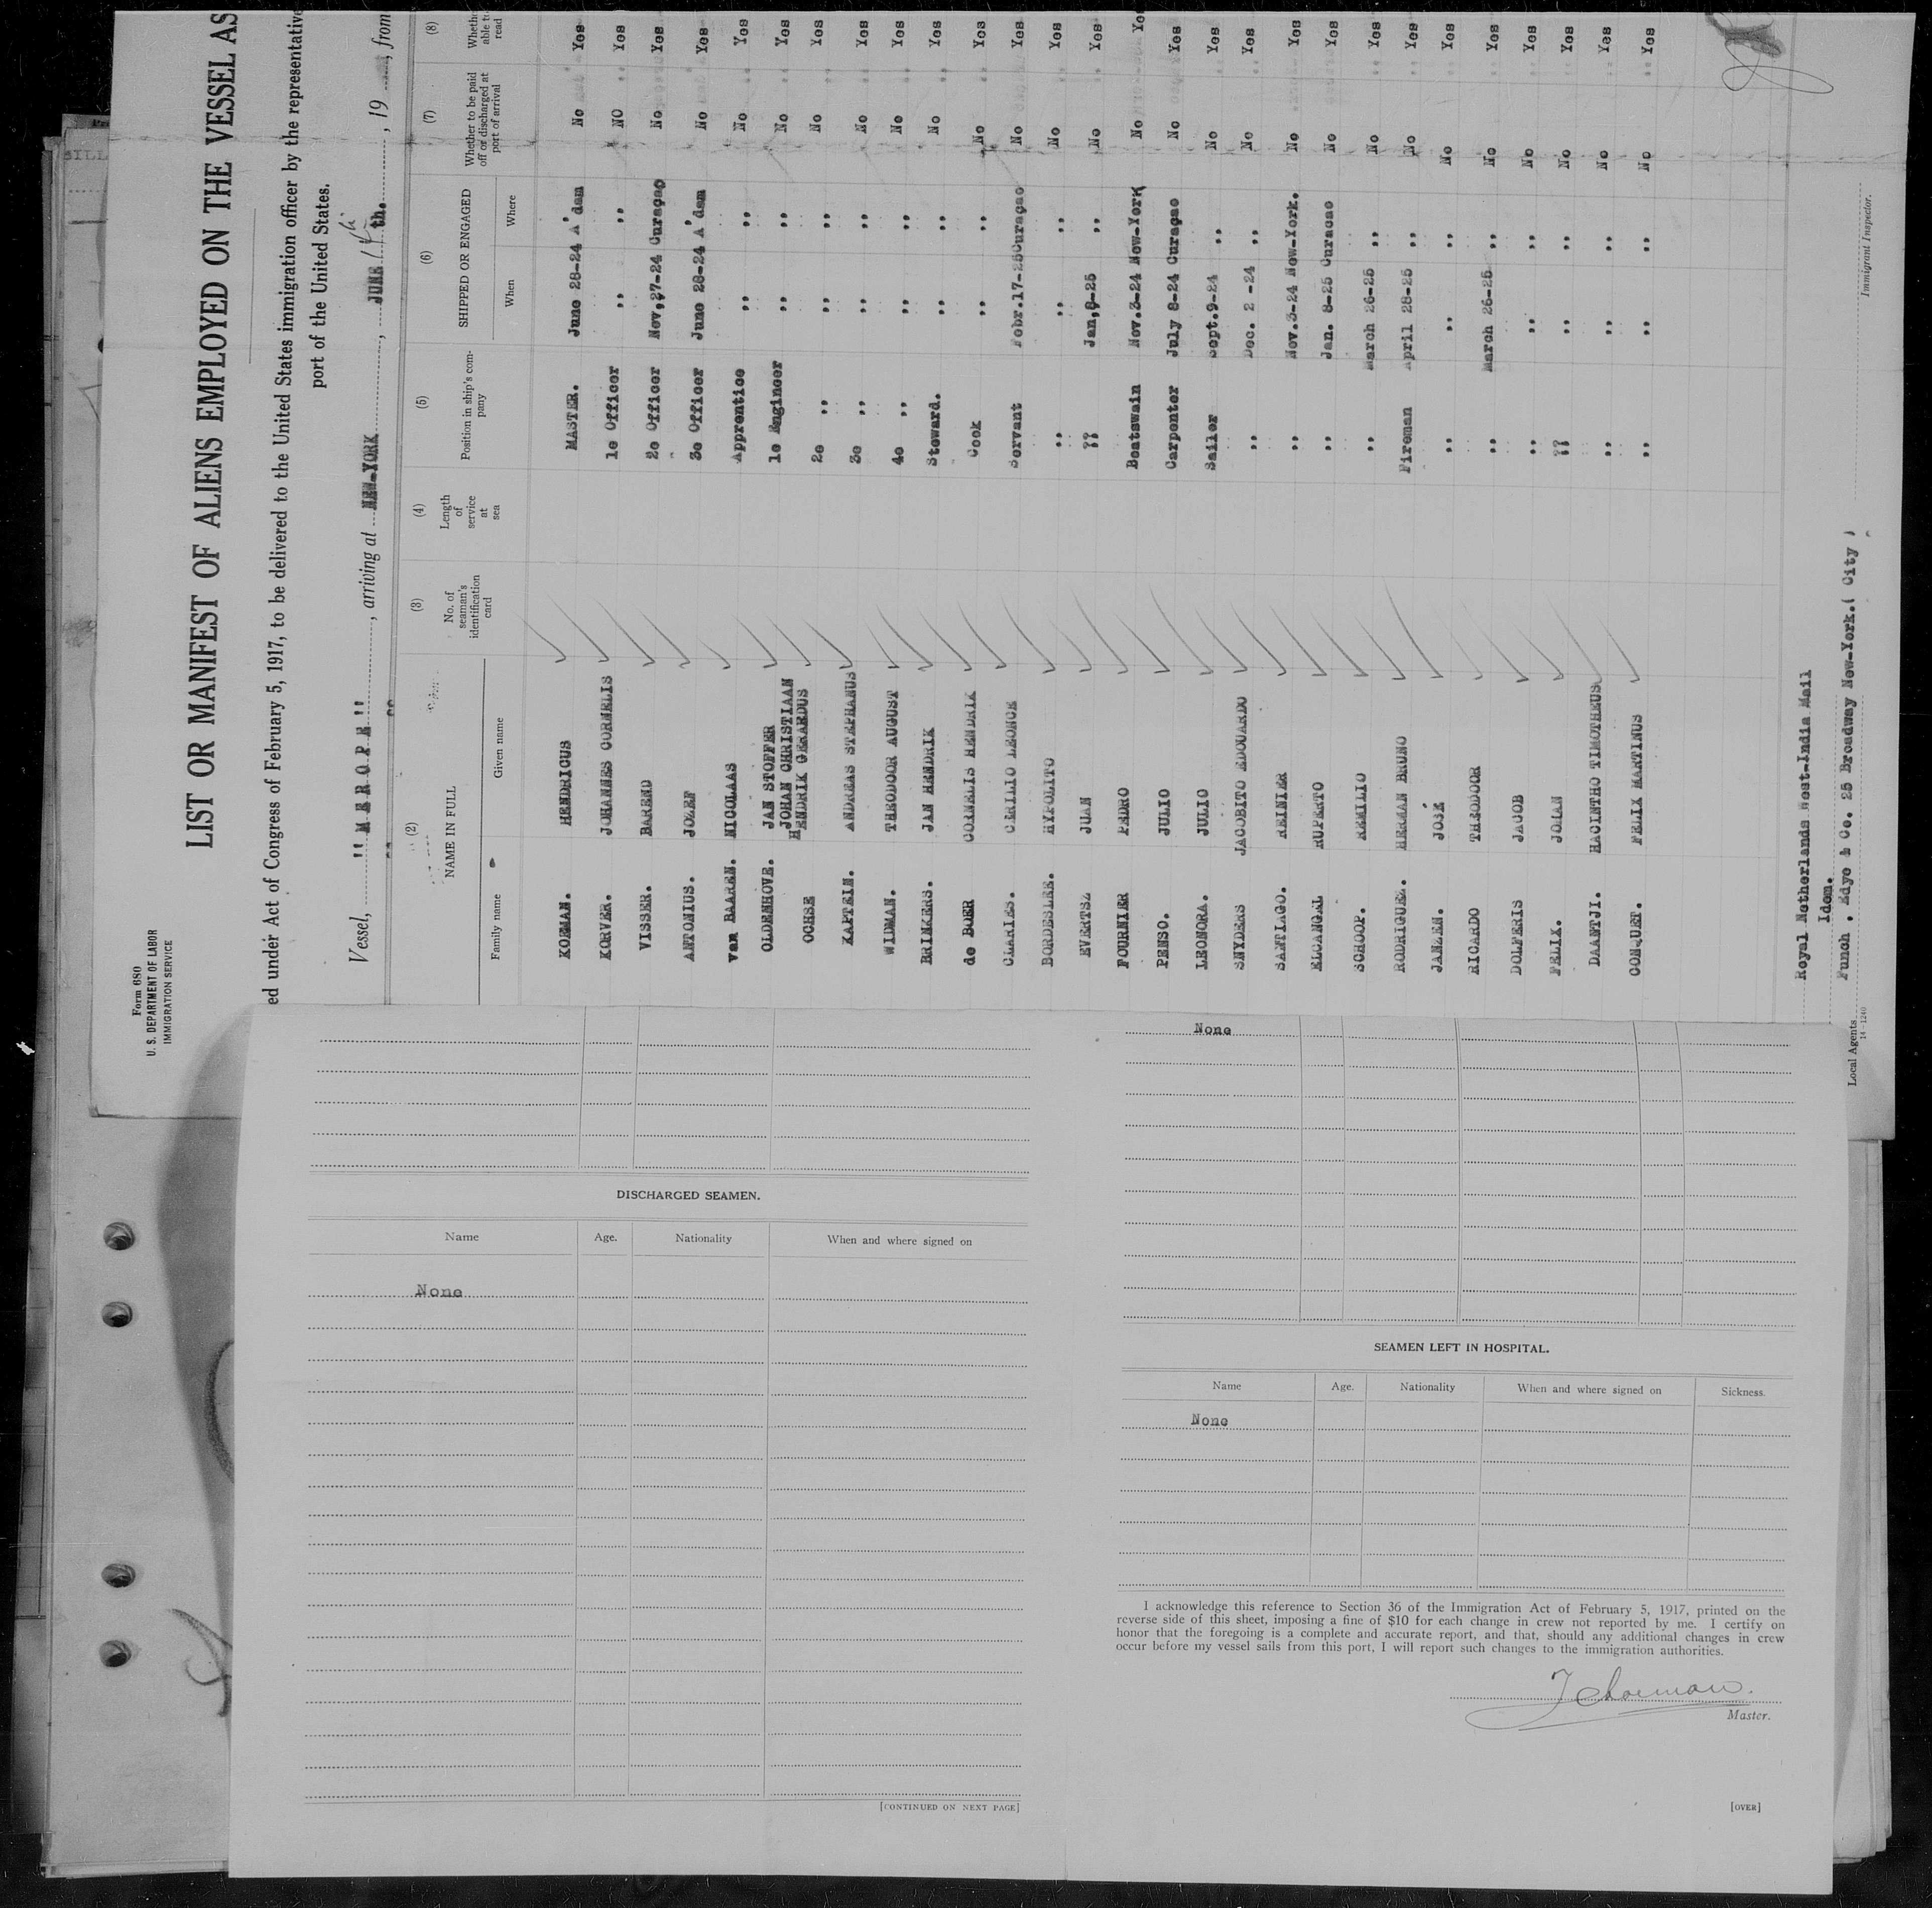 Form 680
U. S. DEPARTMENT OF LABOR
IMMIGRATION SERVICE
LIST OR MANIFEST OF ALIENS EMPLOYED ON THE VESSEL AS
ed under Act of Congress of February 5, 1917, to be delivered to the United States immigration officer by the representative
port of the United States.
Vessel, "MEROPE", arriving at NEW-YORK, JUNE th., 19, from
(2) (3) (4) (5) (6) (7) (8)
NAME IN FULL
Family name Given name
No. of seaman's identification card
Length of service at sea
Position in ship's company
SHIPPED OR ENGAGED
When Where
Whether to be paid off or discharged at port of arrival
able to read
KOEMAN. HENDRICUS MASTER. June 28-24 A'dam No Yes
KORVER. JOHANNES CORNELIS 1e Officer ,, ,, NO Yes
VISSER. BAREND 2e Officer Nov,27-24 Curaçao No Yes
ANTONIUS. JOZEF 3e Officer June 28-24 A'dam No Yes
van BAAREN. NICOLAAS Apprentice ,, ,, No Yes
OLDENHOVE. JAN STOFFER 1e Engineer ,, ,, No Yes
JOHAN CHRISTIAAN
OCHSE HENDRIK GERARDUS 2e ,, ,, ,, No Yes
KAPTEIN. ANDREAS STEPHANUS 3e ,, ,, ,, No Yes
WIDMAN. THEODOOR AUGUST 4e ,, ,, ,, No Yes
BRINKERS. JAN HENDRIK Steward. ,, ,, No Yes
de BOER CORNELIS HENDRIK Cook ,, ,, No Yes
CLARIES. CERILIO LEONCE Servant Febr.17-25 Curaçao No Yes
BORDESLEE. HYPOLITO ,, ,, ,, No Yes
EVERTSZ JUAN ,, Jan,8-25 ,, No Yes
FOURNIER PEDRO Boatswain Nov.3-24 New-York No Yes
PENSO. JULIO Carpenter July 8-24 Curaçao No Yes
LEONORA. JULIO Sailor Sept.9-24 ,, No Yes
SNYDERS JACOBITO EDOUARDO ,, Dec. 2 -24 ,, No Yes
SANTIAGO. REINIER ,, Nov.3-24 New-York. No Yes
ELCANGEL RUPERTO ,, Jan. 8-25 Curacao No Yes
SCHOOP. REMILIO ,, March 26-25 ,, No Yes
RODRIGUEZ. HERMAN BRUNO Fireman April 28-25 ,, No Yes
JANZEN. JOSÉ ,, ,, ,, No Yes
RICARDO THEODOR ,, March 26-25 ,, No Yes
DOLFERIS JACOB ,, ,, ,, No Yes
FELIX. JOHAN ,, ,, ,, No Yes
DAANTJI. HACINTHO TIMOTHEUS ,, ,, ,, No Yes
CONQUET. FELIX MARTINUS ,, ,, ,, No Yes
Royal Netherlands West-India Mail
Idem.
Local Agents Funch , Edye & Co. 25 Broadway New-York.( City )
14-1240
Immigrant Inspector.
DISCHARGED SEAMEN.
Name Age. Nationality When and where signed on
None
[CONTINUED ON NEXT PAGE]
None
SEAMEN LEFT IN HOSPITAL.
Name Age. Nationality When and where signed on Sickness.
None
I acknowledge this reference to Section 36 of the Immigration Act of February 5, 1917, printed on the
reverse side of this sheet, imposing a fine of $10 for each change in crew not reported by me. I certify on
honor that the foregoing is a complete and accurate report, and that, should any additional changes in crew
occur before my vessel sails from this port, I will report such changes to the immigration authorities.
Master.
[OVER]